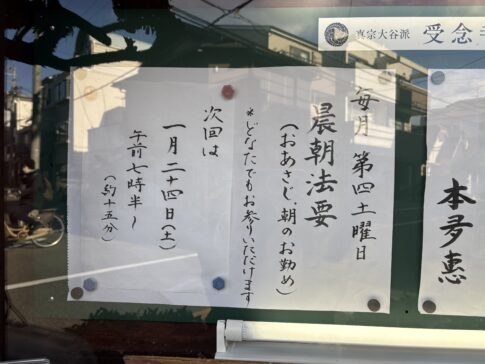 真宗大谷派 受念寺
本多恵
毎月 第四土曜日
晨朝法要
(おあさじ、朝のお勤め)
*どなたでもお参りいただけます
次回は
一月二十四日(土)
午前七時半~
(約十五分)